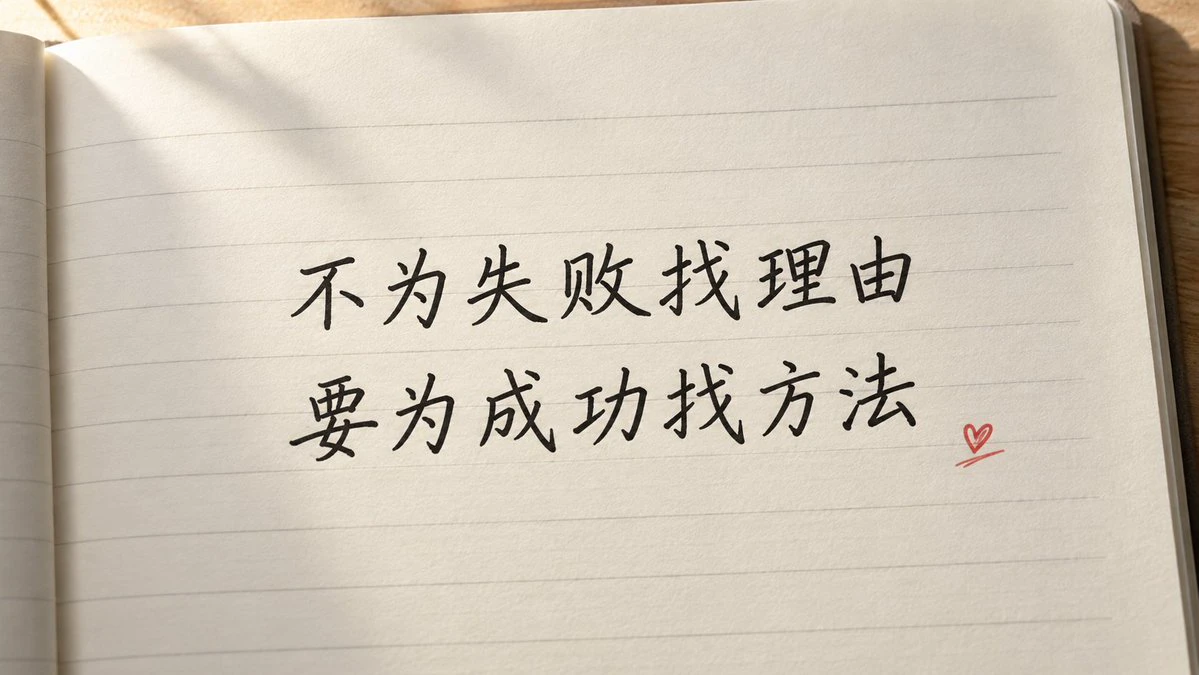 不为失败找理由
要为成功找方法